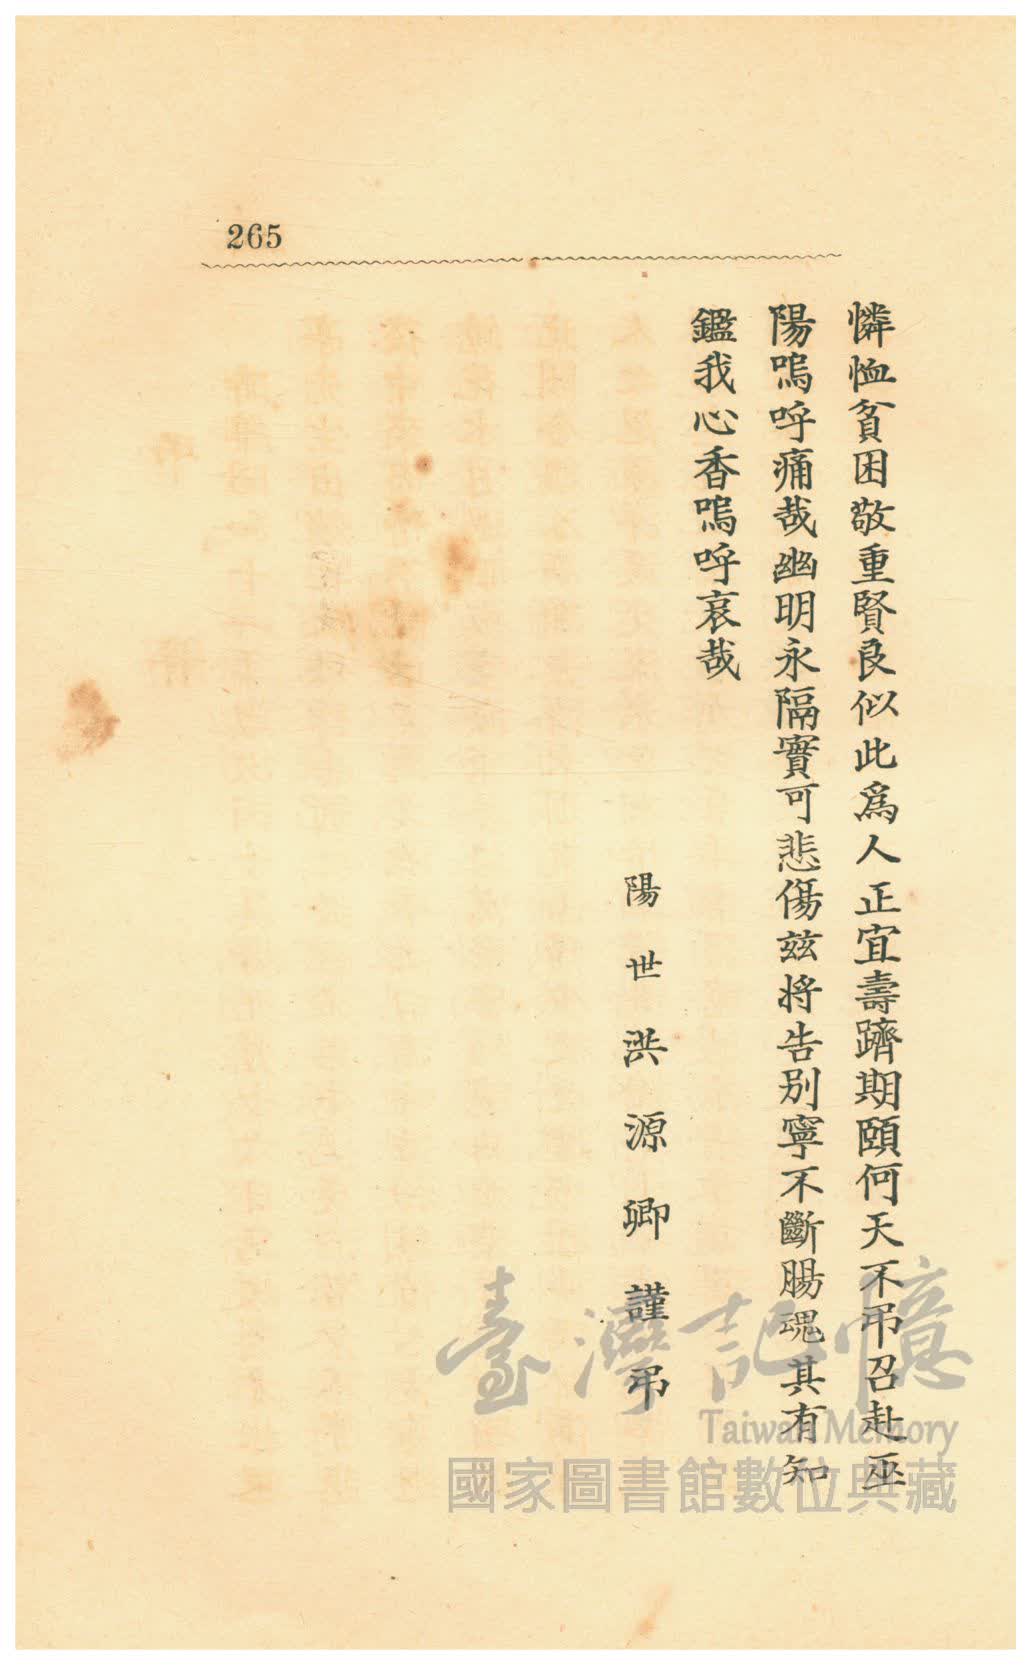 265
憐恤貧困敬重賢良似此爲人正宜壽躋期頤何天不弔召赴巫
陽嗚呼痛哉幽明永隔實可悲傷玆將告別寧不斷腸魂其有知
鑑我心香嗚呼哀哉
陽世洪源卿謹弔
臺灣記憶
Taiwan Memory
國家圖書館數位典藏